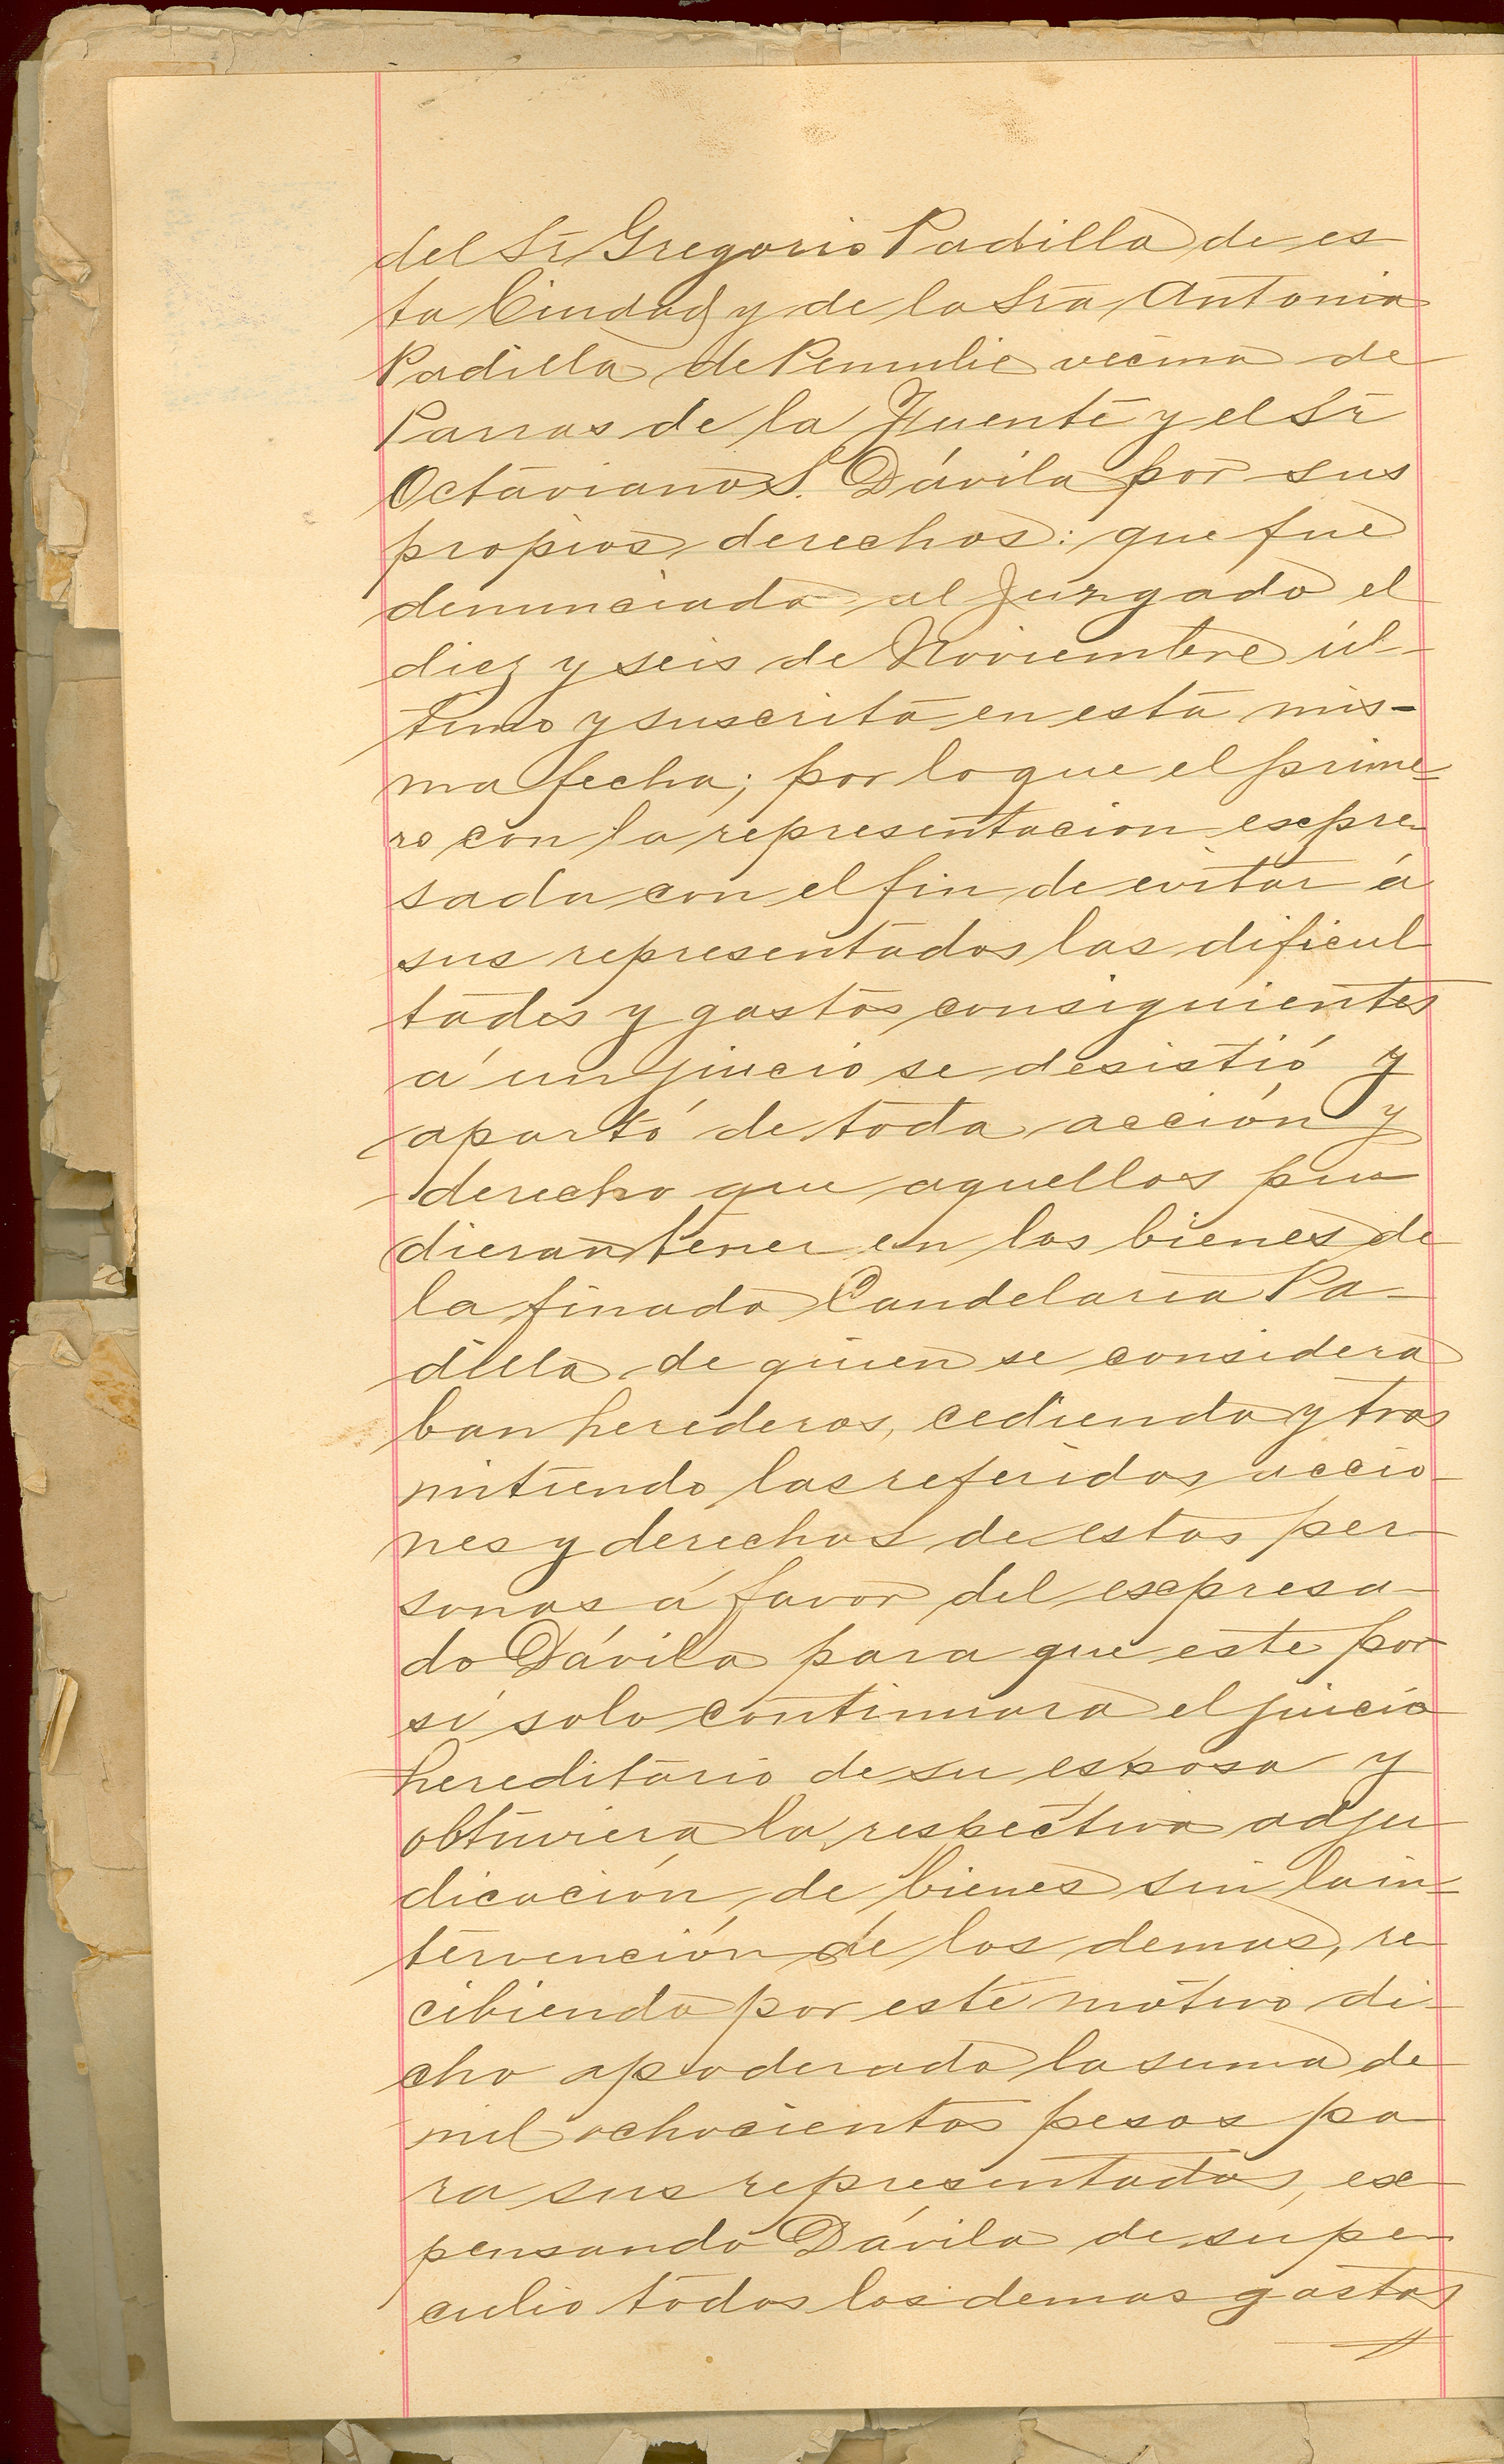 del Sr Gregorio Padilla de es
ta Ciudad y de la Sra Antonia
Padilla de vecina de
Parras de la Fuente y el Sr
Octaviano S. Dávila por sus
propios derechos: que fue
denunciada al Juzgado el
diez y seis de Noviembre úl-
timo y suscrita en esta mis-
ma fecha; por lo que el prime-
ro con la representacion expre
sada con el fin de evitar á
sus representados las dificul
tades y gastos consiguientes
á un juicio se desistió y
apartó de toda acción y
derecho que aquellos pu
dieran tener en los bienes de
la finada Candelaria Pa-
dilla de quien se considera
ban herederos, cediendo y tras
mitiendo las referidas accio
nes y derechos de estas per
sonas á favor del expresa-
do Dávila para que este por
sí solo continuara el juicio
hereditario de su esposa y
obtuviera la respectiva adju
dicación de bienes sin la in-
tervención de los demas, re
cibiendo por este motivo di-
cho apoderado la suma de
mil ochocientos pesos pa
ra sus representados, ex
pensando Dávila de su pe-
culio todos los demas gastos